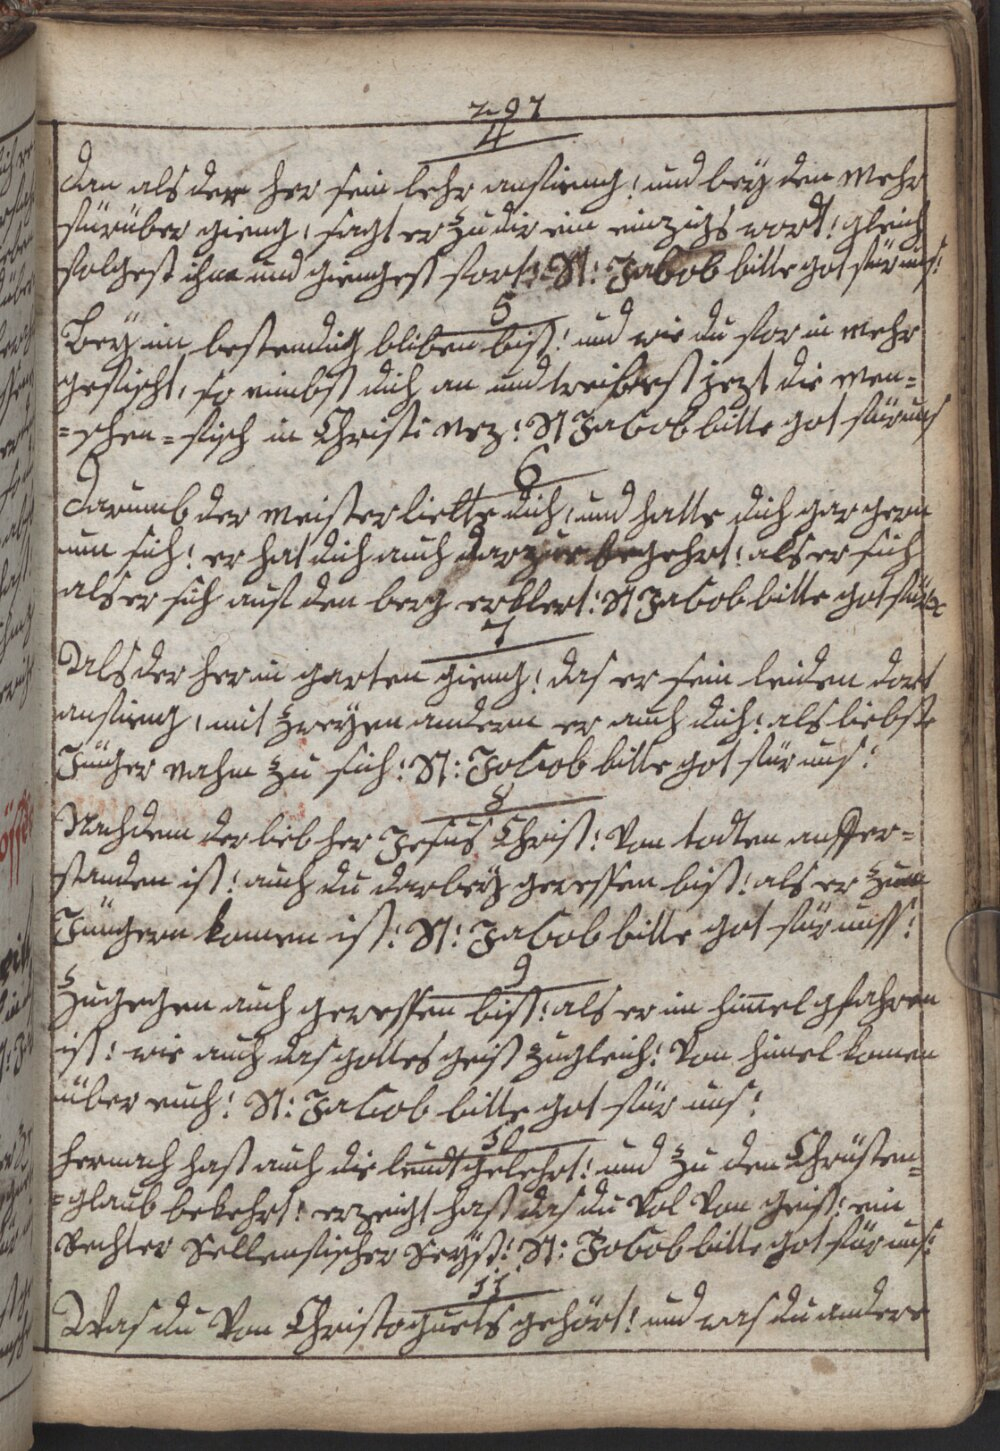 297
4
dan als der her sein lehr anfieng! und bey dem Mehr
fürüber gieng, sagt er zu dir ein einzigs wordt! gleich
folgest ihm und giengest fort! St: Jakob bitte got für uns!
5
Bey im bestendig bliben bist! und wie du for in mehr
gefischt, so nimbst dich an und treibest jezt die men=
=schen=fisch in Christi Nez! St Jacob bitte got für uns
6
darumb der meister liebte dich, und hatte dich gar gern
um sich! er hat dich auch darzue begehrt! als er sich
als er sich auf den berg erklert! St Jacob bitte got für
7
Als der her in garten gieng! das er sein leiden dort
anfieng, mit zweyen andern er auch dich! als liebste
Jünger nahm zu sich! St: Jacob bitte got für uns!
8
Nachdem der lieb her Jesus Christ! Von todten aufffer=
standen ist! auch du darbey gewessen bist! als er zum
Jüngern komen ist! St: Jacob bitte got für unß!
9
Zugegen auch gewessen bist! als er im himel gfahren
ist! wie auch das gottes geist zugleich! Von himel komen
über euch! St: Jacob bitte got für uns!
10
hernach hast auch die leudt gelehrt! und zu den Christen=
=glaub bekehrt! erzeigt hast das du Vol Von geist! ein
rechter Sellenfischer Seyst! St: Jacob bitte got für uns!
11
Was du Von Christo guets gehört! und was du andere